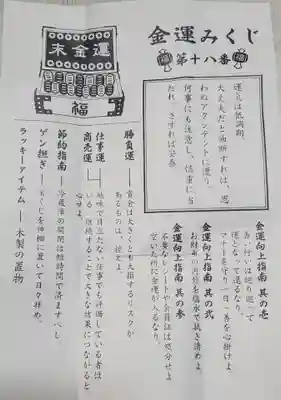 金運みくじ
第十八番
末金運
福
運気は低調期。
大丈夫だと油断すれば、思
わぬアクシデントに遭う。
何事にも注意し、慎重に当
たれ。さすれば安泰。
金運向上指南 其の壱
善い行いは廻り廻って
運となって還るなり。
マナーを守り一日一善を心掛けよ
金運向上指南 其の弐
お財布の汚れを塩水で拭き清めよ
金運向上指南 其の参
不要なレシートや会員証は処分せよ
空いた所に金運が入るなり。
勝負運 ― 賞金は大きくとも大損するリスクが
あるものは、控えよ。
仕事運
商売運 ― 地味で目立たない仕事でも評価している者は
いる。継続することで大きな結果につながると
節約指南 ― 冷蔵庫の開閉は短時間で済ますべし
ゲン担ぎ ― みくじを神棚に置いて日々拝め。
ラッキーアイテム ― 木製の置物